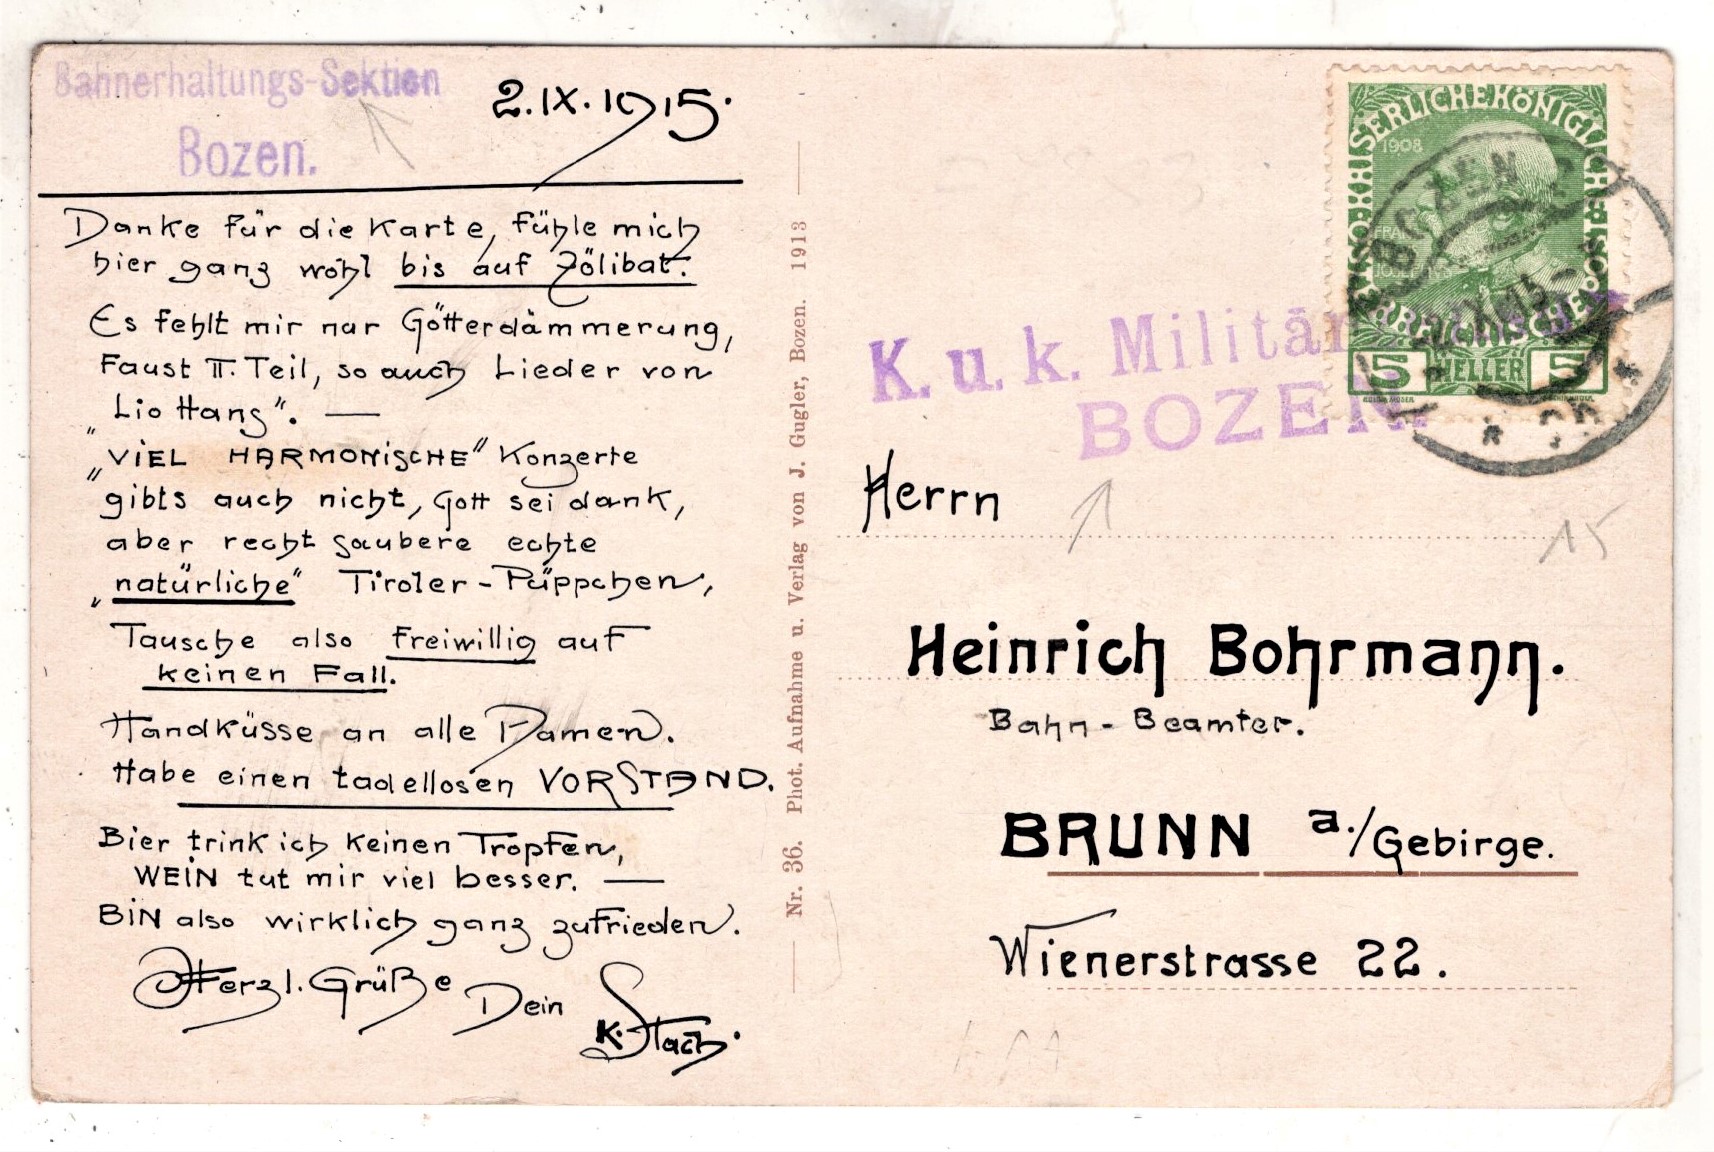 Bahnerhaltungs-Sektion
Bozen.
2.IX.1915.
Danke für die Karte, fühle mich
hier ganz wohl bis auf Zölibat.
Es fehlt mir nur Götterdämmerung,
Faust II. Teil, so auch Lieder von
„Lio Hans“. —
„VIEL HARMONISCHE“ Konzerte
gibts auch nicht, Gott sei dank,
aber recht saubere echte
„natürliche“ Tiroler-Püppchen,
Tausche also freiwillig auf
keinen Fall.
Handküsse an alle Damen.
Habe einen tadellosen VORSTAND.
Bier trink ich keinen Tropfen,
WEIN tut mir viel besser. —
BIN also wirklich ganz zufrieden.
Herzl. Grüße Dein
K. Stach.
Nr. 36. Phot. Aufnahme u. Verlag von J. Gugler, Bozen. 1913
1908
5 HELLER 5
BOZEN
K. u. k. Militär
BOZEN.
Herrn
15
Heinrich Bohrmann.
Bahn-Beamter.
BRUNN a./Gebirge.
Wienerstrasse 22.